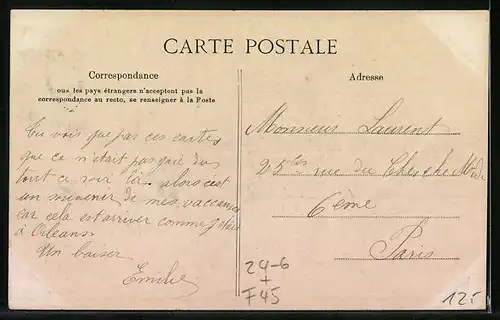 CARTE POSTALE
Correspondance
ous les pays étrangers n'acceptent pas la
correspondance au recto, se renseigner à la Poste
Adresse
Tu vois que par ces cartes
que ce n'était pas gaie du
tout ce soir là. alors c'est
un souvenir de mes vaccances
car cela est arriver comme j'étais
à Orleans.
Un baiser
Emilie
Monsieur Laurent
25 bis rue du Cherche Midi
6ème
Paris
24-6
+
F45
125